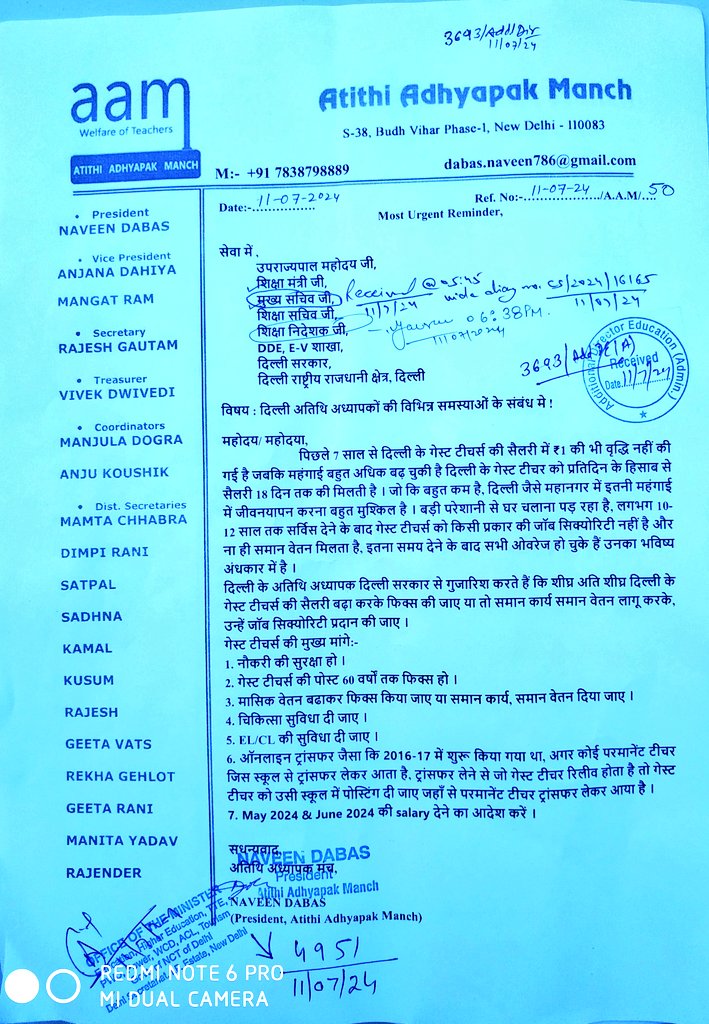 3693/Add Dir
11/07/24
aam
Welfare of Teachers
ATITHI ADHYAPAK MANCH
Atithi Adhyapak Manch
S-38, Budh Vihar Phase-1, New Delhi - 110083
M:- +91 7838798889
dabas.naveen786@gmail.com
• President
NAVEEN DABAS
• Vice President
ANJANA DAHIYA
MANGAT RAM
• Secretary
RAJESH GAUTAM
• Treasurer
VIVEK DWIVEDI
• Coordinators
MANJULA DOGRA
ANJU KOUSHIK
• Dist. Secretaries
MAMTA CHHABRA
DIMPI RANI
SATPAL
SADHNA
KAMAL
KUSUM
RAJESH
GEETA VATS
REKHA GEHLOT
GEETA RANI
MANITA YADAV
RAJENDER
Date:- 11-07-2024
Ref. No:- 11-07-24 /A.A.M/ 50
Most Urgent Reminder,
सेवा में ,
उपराज्यपाल महोदय जी,
शिक्षा मंत्री जी,
मुख्य सचिव जी, Received @ 05:45 vide diary no. CS/2024/16165
11/7/24 11/07/24
शिक्षा सचिव जी,
शिक्षा निदेशक जी, 06:38PM.
11/07/2024
DDE, E-V शाखा,
दिल्ली सरकार,
दिल्ली राष्ट्रीय राजधानी क्षेत्र, दिल्ली
3693/
Additional Director Education (Admin.)
Received
Date 11/7/24
विषय : दिल्ली अतिथि अध्यापकों की विभिन्न समस्याओं के संबंध मे !
महोदय/ महोदया,
पिछले 7 साल से दिल्ली के गेस्ट टीचर्स की सैलरी में ₹1 की भी वृद्धि नहीं की
गई है जबकि महंगाई बहुत अधिक बढ़ चुकी है दिल्ली के गेस्ट टीचर को प्रतिदिन के हिसाब से
सैलरी 18 दिन तक की मिलती है । जो कि बहुत कम है, दिल्ली जैसे महानगर में इतनी महंगाई
में जीवनयापन करना बहुत मुश्किल है । बड़ी परेशानी से घर चलाना पड़ रहा है, लगभग 10-
12 साल तक सर्विस देने के बाद गेस्ट टीचर्स को किसी प्रकार की जॉब सिक्योरिटी नहीं है और
ना ही समान वेतन मिलता है, इतना समय देने के बाद सभी ओवरेज हो चुके हैं उनका भविष्य
अंधकार में है ।
दिल्ली के अतिथि अध्यापक दिल्ली सरकार से गुजारिश करते हैं कि शीघ्र अति शीघ्र दिल्ली के
गेस्ट टीचर्स की सैलरी बढ़ा करके फिक्स की जाए या तो समान कार्य समान वेतन लागू करके,
उन्हें जॉब सिक्योरिटी प्रदान की जाए ।
गेस्ट टीचर्स की मुख्य मांगे:-
1. नौकरी की सुरक्षा हो ।
2. गेस्ट टीचर्स की पोस्ट 60 वर्षों तक फिक्स हो ।
3. मासिक वेतन बढाकर फिक्स किया जाए या समान कार्य, समान वेतन दिया जाए ।
4. चिकित्सा सुविधा दी जाए ।
5. EL/CL की सुविधा दी जाए ।
6. ऑनलाइन ट्रांसफर जैसा कि 2016-17 में शुरू किया गया था, अगर कोई परमानेंट टीचर
जिस स्कूल से ट्रांसफर लेकर आता है, ट्रांसफर लेने से जो गेस्ट टीचर रिलीव होता है तो गेस्ट
टीचर को उसी स्कूल में पोस्टिंग दी जाए जहाँ से परमानेंट टीचर ट्रांसफर लेकर आया है ।
7. May 2024 & June 2024 की salary देने का आदेश करें ।
सधन्यवाद,
अतिथि अध्यापक मंच,
NAVEEN DABAS
President
Atithi Adhyapak Manch
NAVEEN DABAS
(President, Atithi Adhyapak Manch)
OFFICE OF THE MINISTER
Education, Higher Education, TTE,
Power, WCD, ACL, Tourism
Govt. of NCT of Delhi
Delhi Secretariat, I.P. Estate, New Delhi
4951
11/07/24
REDMI NOTE 6 PRO
MI DUAL CAMERA